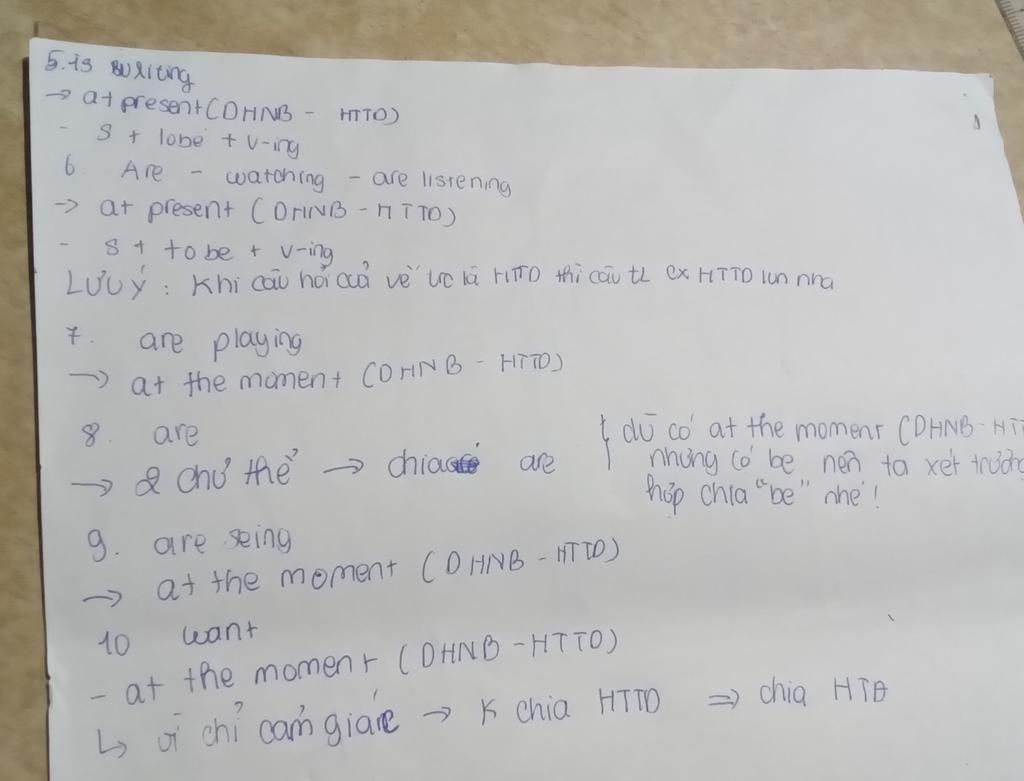 5. is writing
→ at present (DHNB - HTTD)
- S + tobe + V-ing
6. Are - watching - are listening
→ at present (DHNB - HTTD)
- S + to be + V-ing
LƯU Ý : Khi câu hỏi cả về là HTTD thì câu tL cx HTTD lun nha
7. are playing
→ at the moment (DHNB - HTTD)
8. are
→ 2 chủ thể → chia are
dù có at the moment (DHNB - HT
nhưng có be nên ta xét trường
hợp chia "be" nhé!
9. are seing
→ at the moment (DHNB - HTTD)
10 want
- at the moment (DHNB - HTTD)
↳ vì chỉ cảm giác → K chia HTTD ⇒ chia HTĐ